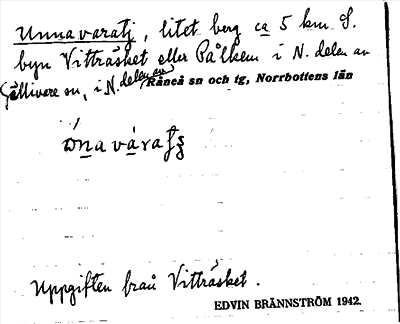 Unna varatj, litet berg ca 5 km S.
byn Vitträsket eller Pålkem i N. delen av
Gällivare sn, i N. delen av Råneå sn och tg, Norrbottens län
Uppgiften från Vitträsket.
EDVIN BRÄNNSTRÖM 1942.